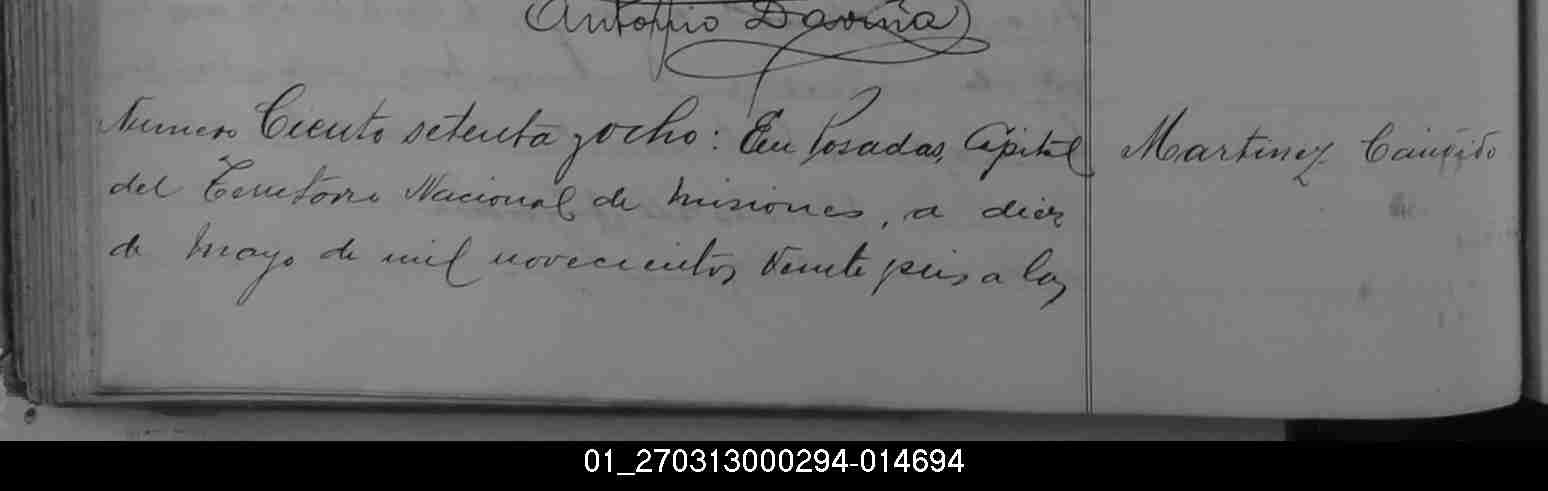 Antonio Daviña
Numero Ciento setenta y ocho: En Posadas, Capital
Martinez Candido
del Territorio Nacional de Misiones, a diez
de Mayo de mil novecientos veinte seis a las
01_270313000294-014694